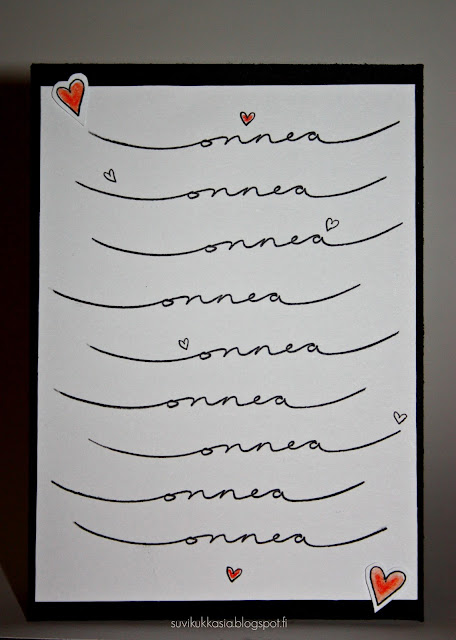 onnea
onnea
onnea
onnea
onnea
onnea
onnea
onnea
onnea
suvikukkasia.blogspot.fi